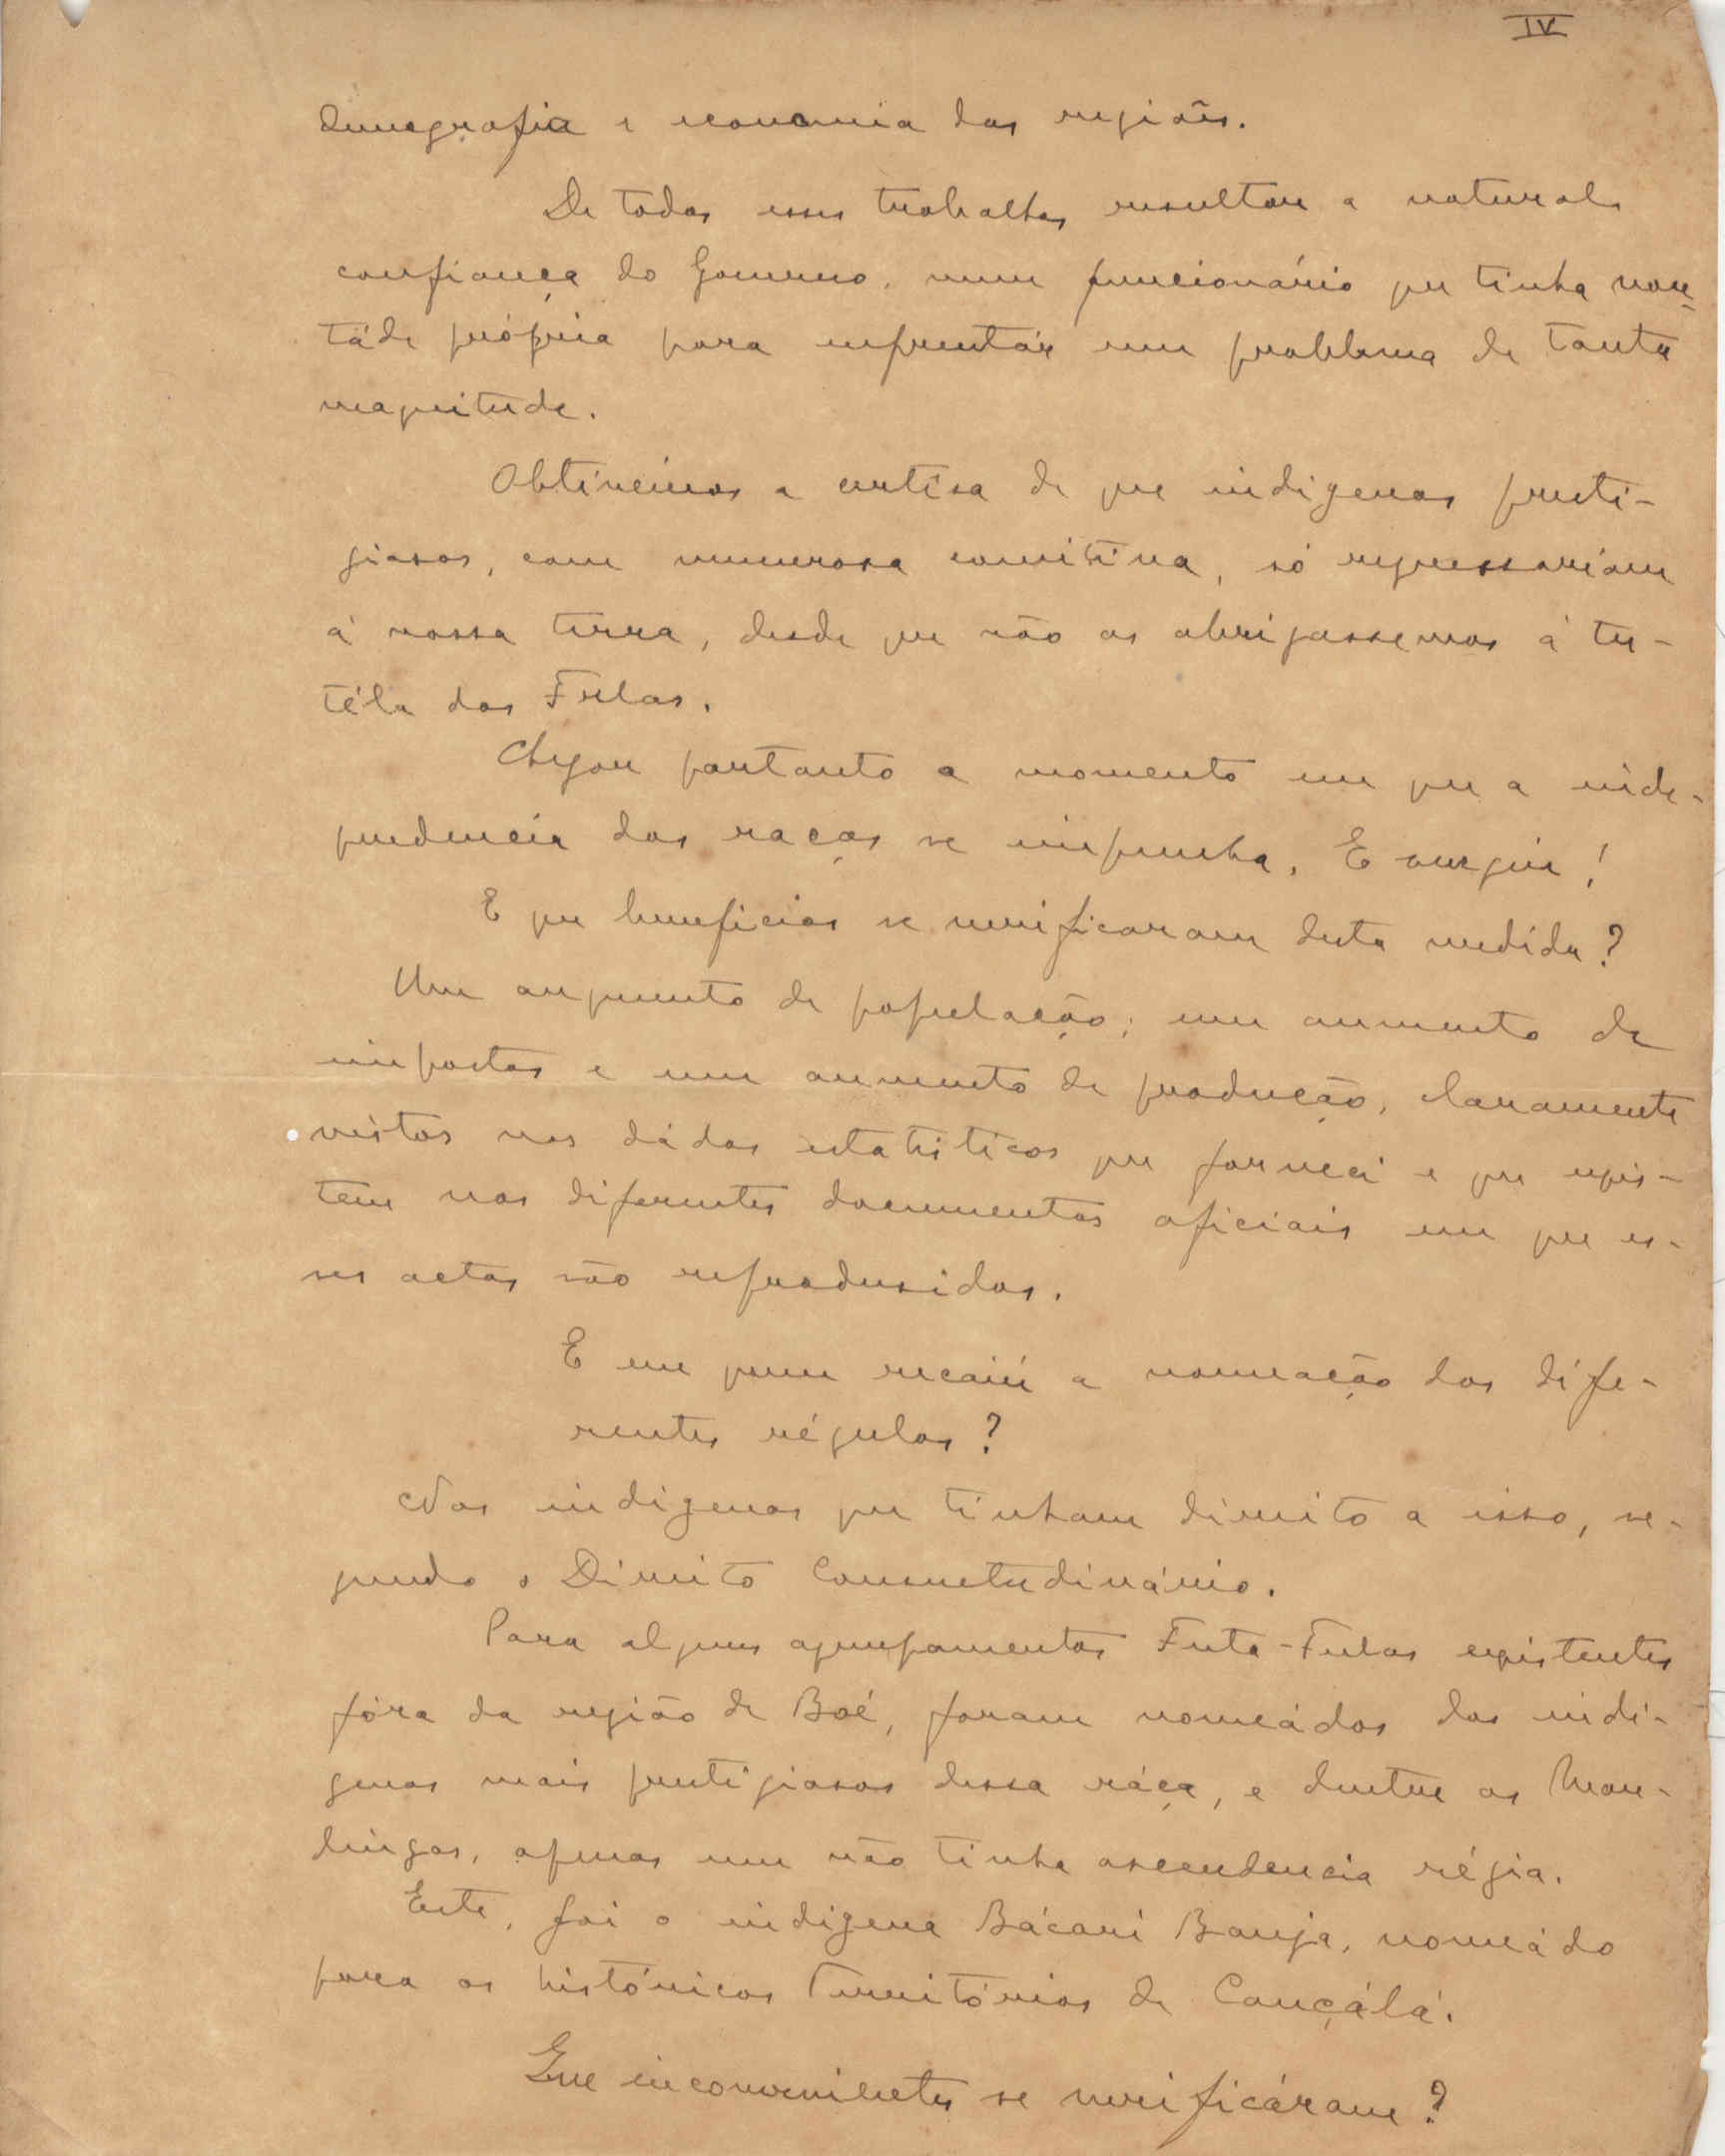 IV
demografia e economia das regiões.
De todos esses trabalhos resultou a natural
confiança do Governo, num funcionário que tinha von-
táde própria para enfrentár um problema de tanta
magnitude.
Obtivémos a certêsa de que indigenas presti-
giosos, com numerosa comitiva, só regressariam
á nossa terra, desde que não os obrigassemos á tu-
téla dos Fulas.
Chegou portanto o momento em que a inde-
pendencia das raças se impunha. E surgiu!
E que beneficios se verificaram desta medida?
Um augmento de população; um aumento de
impostos e um aumento de produção, claramente
vistos nos dádos estatisticos que forneci e que exis-
tem nos diferentes documentos oficiais em que es-
ses actos são reprodusidos.
E em quem recaiu a nomeação dos dife-
rentes régulos?
Nos indigenas que tinham direito a isso, se-
gundo o Direito Consuetudinário.
Para alguns agrupamentos Futa-Fulas existentes
fóra da região de Boé, foram nomeádos dos indi-
genas mais prestigiosos dessa ráça, e dentre os Man-
dingas, apenas um não tinha ascendencia régia.
Este, foi o indigena Bácari Banja, nomeádo
para os históricos Territórios de Cançálá.
Que inconvenientes se verificáram?